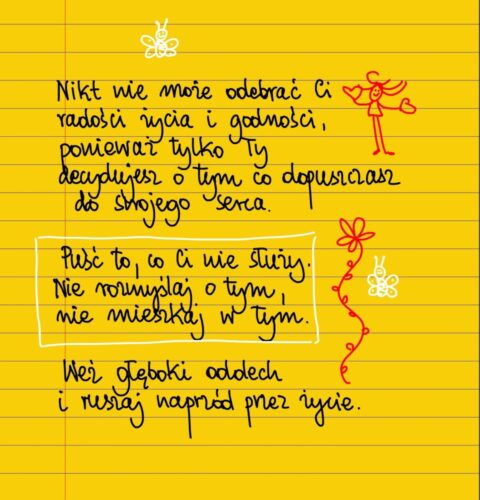 Nikt nie może odebrać Ci
radości życia i godności,
ponieważ tylko Ty
decydujesz o tym co dopuszczasz
do swojego serca.
Puść to, co Ci nie służy.
Nie rozmyślaj o tym,
nie mieszkaj w tym.
Weź głęboki oddech
i ruszaj naprzód przez życie.